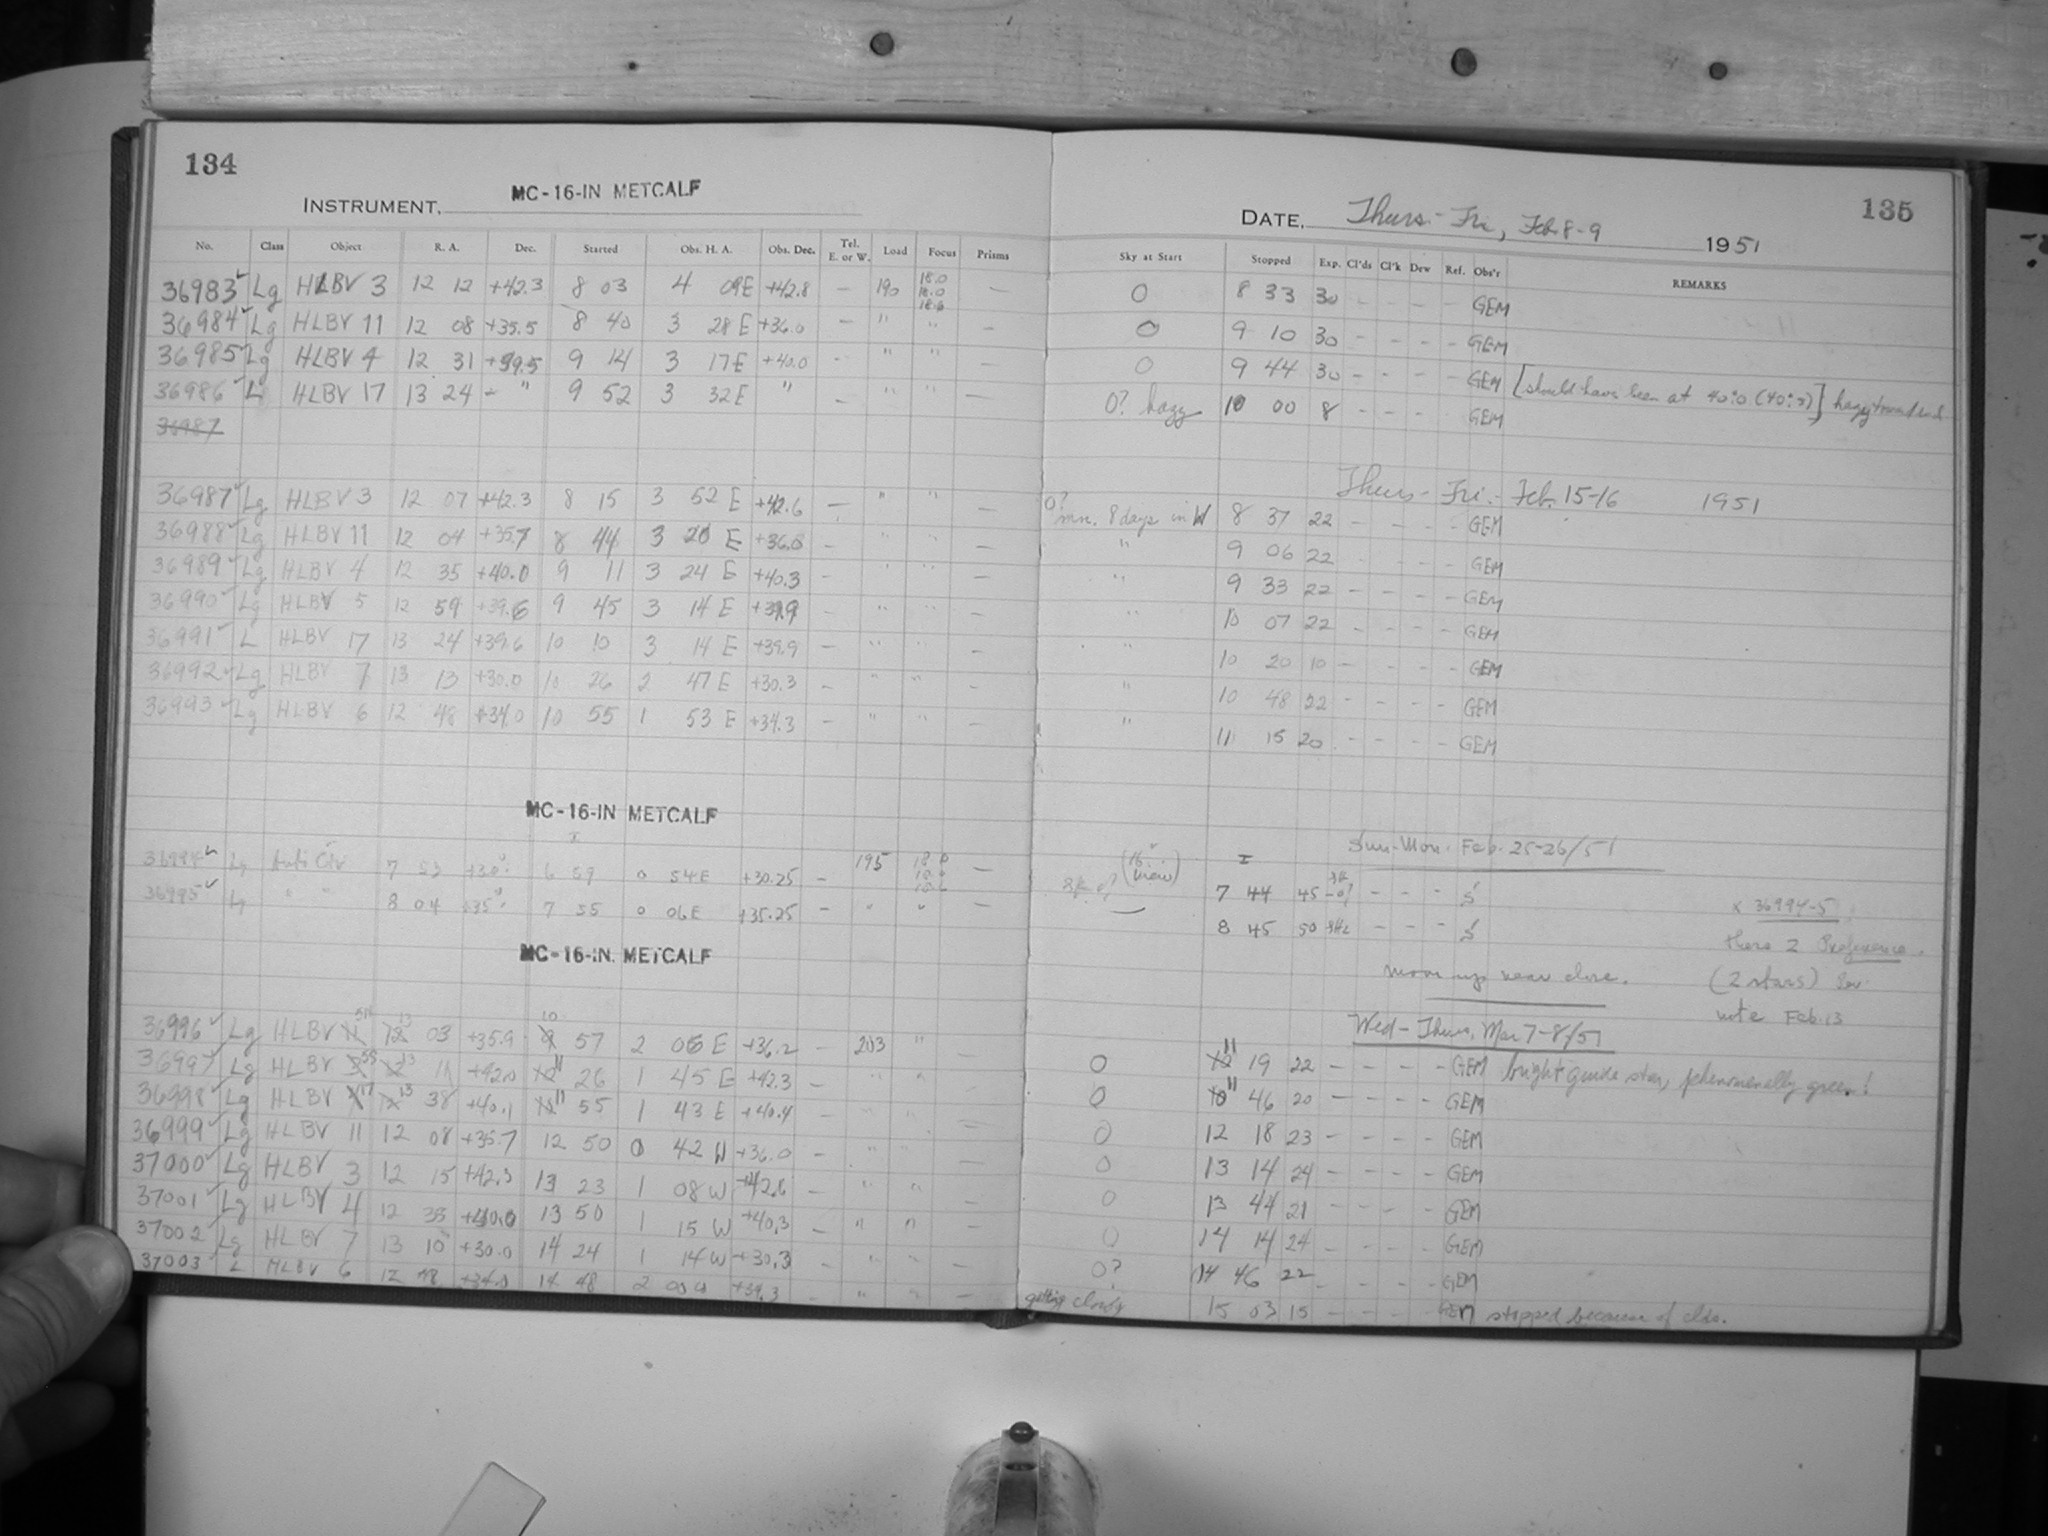 134
INSTRUMENT, MC-16-IN METCALF
No. Class Object R. A. Dec. Started Obs. H. A. Obs. Dec. Tel. E. or W. Load Focus Prisms
36983 Lg HLBV 3 12 12 +42.3 8 03 4 09E +42.8 – 190 18.0 18.0 18.6 –
36984 Lg HLBV 11 12 08 +35.5 8 40 3 28 E +36.0 – " " –
36985 Lg HLBV 4 12 31 +39.5 9 14 3 17E +40.0 – " " –
36986 L HLBV 17 13 24 – " 9 52 3 32E " – " " –
36987
36987 Lg HLBV 3 12 07 +42.3 8 15 3 52 E +42.6 – " " –
36988 Lg HLBV 11 12 04 +35.7 8 44 3 20 E +36.0 – " " –
36989 Lg HLBV 4 12 35 +40.0 9 11 3 24 E +40.3 – " " –
36990 Lg HLBV 5 12 59 +39.6 9 45 3 14 E +39.9 – " " –
36991 L HLBV 17 13 24 +39.6 10 10 3 14 E +39.9 – " " –
36992 Lg HLBV 7 13 13 +30.0 10 26 2 47 E +30.3 – " " –
36993 Lg HLBV 6 12 48 +34.0 10 55 1 53 E +34.3 – " " –
MC-16-IN METCALF
36994 Lg Anti Ctr 7 53 +30° 6 59 0 54E +30.25 – 195 –
36995 Lg " " 8 04 +35° 7 55 0 06E +35.25 – " " –
MC-16-IN METCALF
36996 Lg HLBV 13 03 +35.9 10 57 2 06 E +36.2 – 203 " –
36997 Lg HLBV 13 11 +42.0 11 26 1 45 E +42.3 – " " –
36998 Lg HLBV 17 13 38 +40.1 11 55 1 43 E +40.4 – " " –
36999 Lg HLBV 11 12 08 +35.7 12 50 0 42 W +36.0 – " " –
37000 Lg HLBV 3 12 15 +42.3 13 23 1 08 W +42.6 – " " –
37001 Lg HLBV 4 12 35 +40.0 13 50 1 15 W +40.3 – " " –
37002 Lg HLBV 7 13 10 +30.0 14 24 1 14 W +30.3 – " " –
37003 L HLBV 6 12 48 +34.0 14 48 2 00 W +34.3 – " " –
135
DATE, Thurs.- Fri, Feb 8-9 1951
Sky at Start Stopped Exp. Cl'ds Cl'k Dew Ref. Obs'r REMARKS
0 8 33 30 – – – – GEM
0 9 10 30 – – – – GEM
0 9 44 30 – – – – GEM [should have been at 40°.0 (40°.3)] hazy toward end
0? hazy 10 00 8 – – – GEM
Thurs- Fri.- Feb. 15-16 1951
0? mn. 8 days in W 8 37 22 – – – – GEM
" 9 06 22 – – – – GEM
" 9 33 22 – – – – GEM
" 10 07 22 – – – – GEM
" 10 20 10 – – – – GEM
" 10 48 22 – – – – GEM
" 11 15 20 – – – – GEM
Sun.-Mon. Feb. 25-26/51
7 44 45 – – – S
8 45 50 – – – S
x 36994-5
these 2 Preference.
(2 stars)
note Feb. 13
moon up near close.
Wed- Thurs, Mar 7-8/51
0 11 19 22 – – – – GEM bright guide star, phenomenally green!
0 11 46 20 – – – – GEM
0 12 18 23 – – – – GEM
0 13 14 24 – – – – GEM
0 13 44 21 – – – – GEM
0 14 14 24 – – – – GEM
0? 14 46 22 – – – GEM
getting cloudy 15 03 15 – – – GEM stopped because of clds.